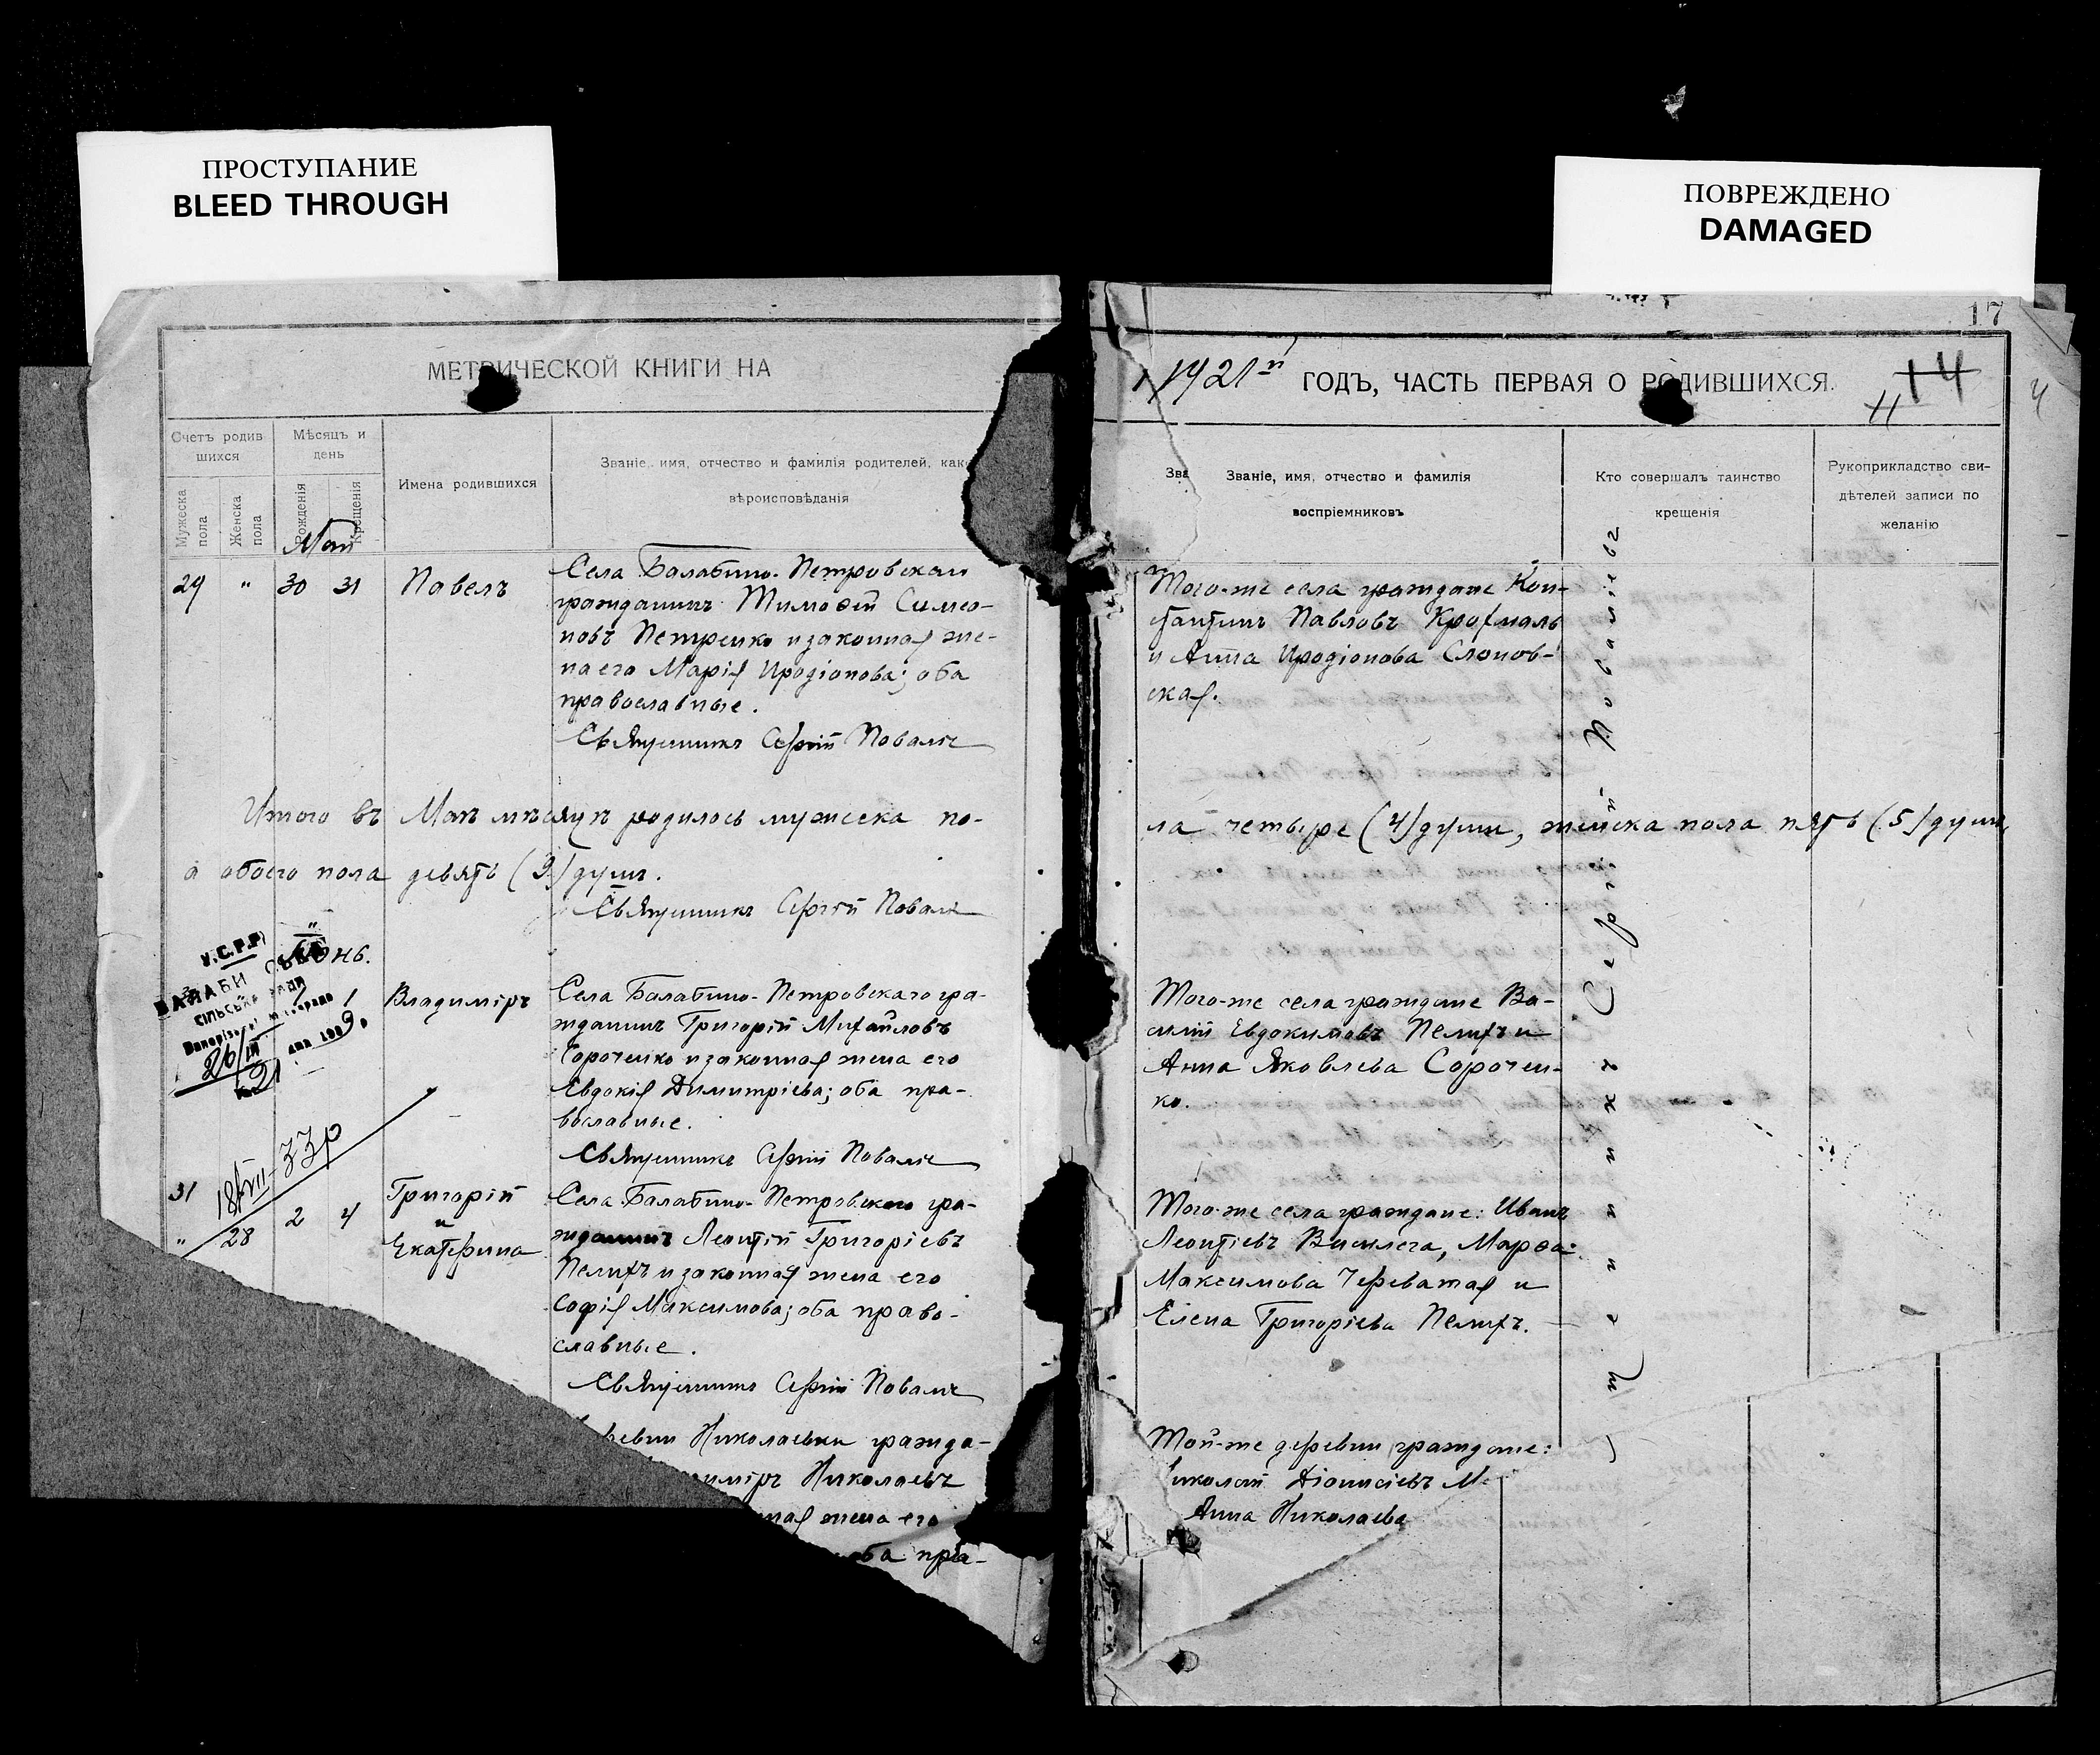 ПРОСТУПАНИЕ
BLEED THROUGH
ПОВРЕЖДЕНО
DAMAGED
17
МЕТРИЧЕСКОЙ КНИГИ НА
1921й ГОДЪ, ЧАСТЬ ПЕРВАЯ О РОДИВШИХСЯ.
14
11
4
Счетъ родив
шихся
Мужеска пола
Женска пола
Мѣсяцъ и
день
Рожденія
Крещенія
Имена родившихся
Званіе, имя, отчество и фамилія родителей, как
вѣроисповѣданія
Зва
Званіе, имя, отчество и фамилія
воспріемниковъ
Кто совершалъ таинство
крещенія
Рукоприкладство сви-
дѣтелей записи по
желанію
Май
29 " 30 31 Павелъ
Села Балабино-Петровскаго
гражданинъ Тимоѳей Симео-
новъ Петренко и законная же-
на его Марія Иродіонова; оба
православные.
Священникъ Сергій Повалѣ
Того-же села граждане Кон-
стантинъ Павловъ Крохмаль
и Анна Иродіонова Слонов-
ская.
Итого въ Маѣ мѣсяцѣ родилось мужеска по-
ла четыре (4) души, женска пола пять (5) душъ,
а обоего пола девять (9) душъ.
Священникъ Сергій Повалѣ
Іюнь.
У.С.Р.Р.
БАЛАБИ
СІЛЬСЬКА РАДИ
26/III
21
1 Владиміръ
Села Балабино-Петровскаго гра-
жданинъ Григорій Михайловъ
Сороченко и законная жена его
Евдокія Димитріева; оба пра-
вославные.
Священникъ Сергій Повалѣ
Того-же села граждане Ва-
силій Евдокимовъ Пелихъ и
Анна Яковлева Сорочен-
ко.
18/VII-33р
31
" 28 2 4 Григорій
и
Екатерина
Села Балабино-Петровскаго гра-
жданинъ Леонтій Григоріевъ
Пелихъ и законная жена его
Софія Максимова; оба право-
славные.
Священникъ Сергій Повалѣ
Того-же села граждане: Иванъ
Леонтіевъ Висилега, Марѳа
Максимова Череватая и
Елена Григоріева Пелихъ.
ревни Николаевки гражда-
иміръ Николаевъ
ная жена его
ба пра-
Той-же деревни граждане:
иколай Діонисіевъ М
Анна Николаева
Священникъ Сергій Поваличъ